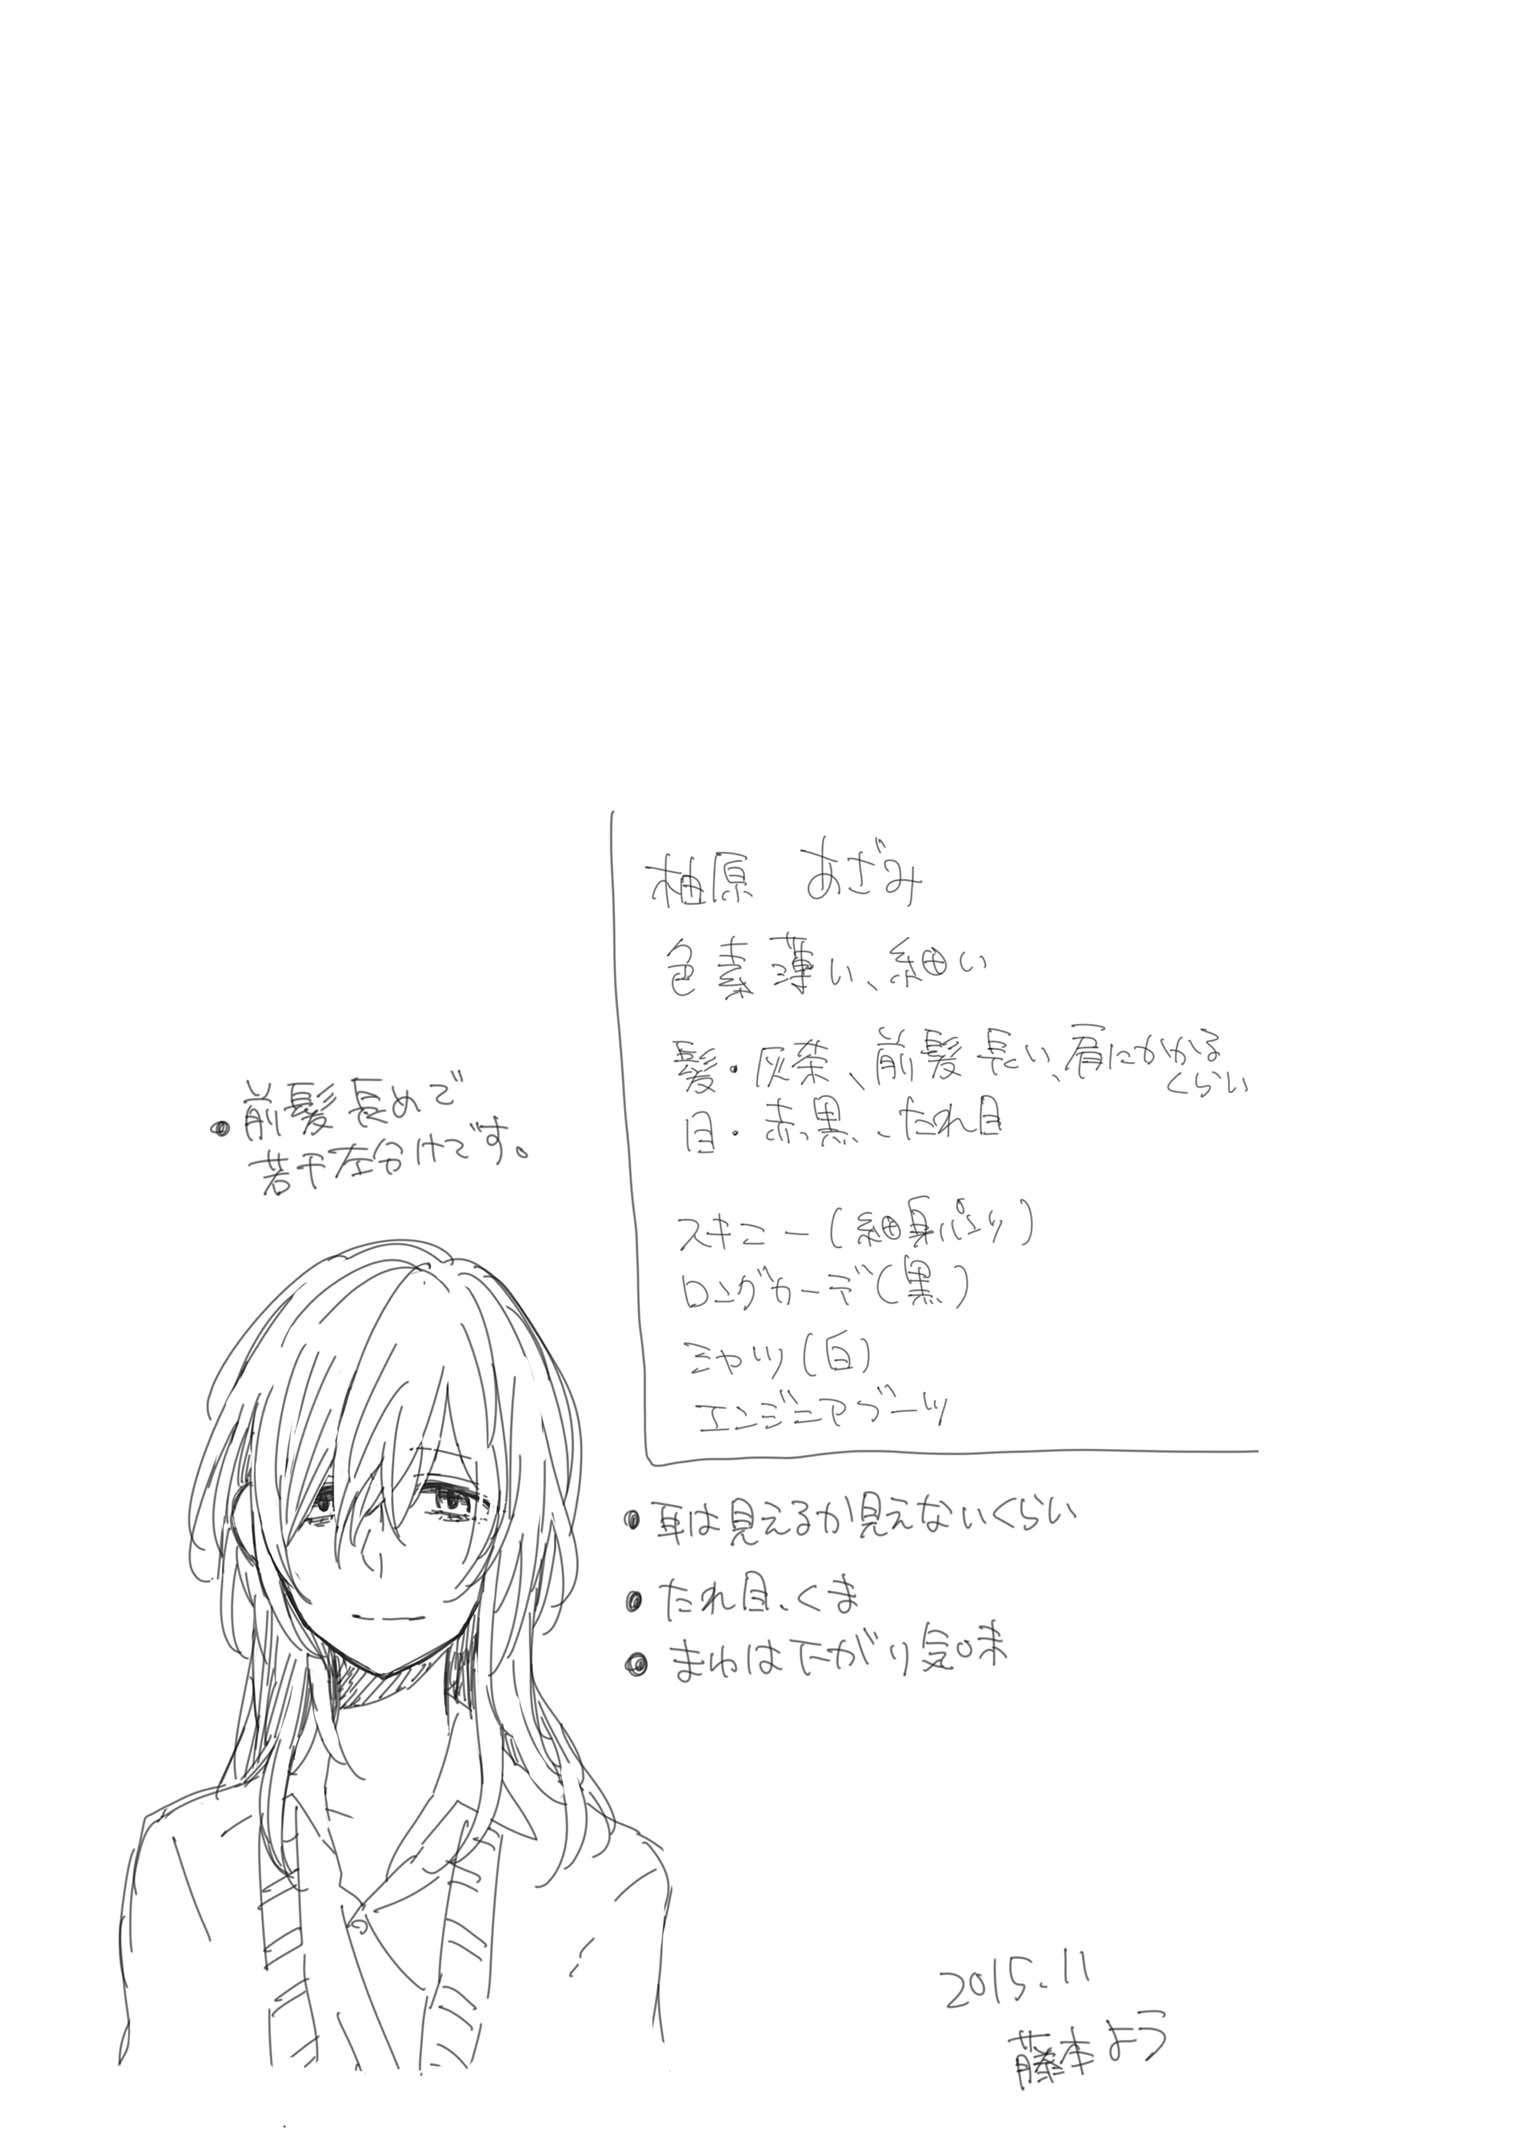 柚原 あざみ
色素薄い、細い
髪・灰茶、前髪長い、肩にかかる
くらい
目・赤黒、たれ目
スキニー(細身パンツ)
ロングカーデ(黒)
シャツ(白)
エンジニアブーツ
・前髪長めで
若干左分けです。
・耳は見えるか見えないくらい
・たれ目、くま
・まゆは下がり気味
2015.11
藤本よう